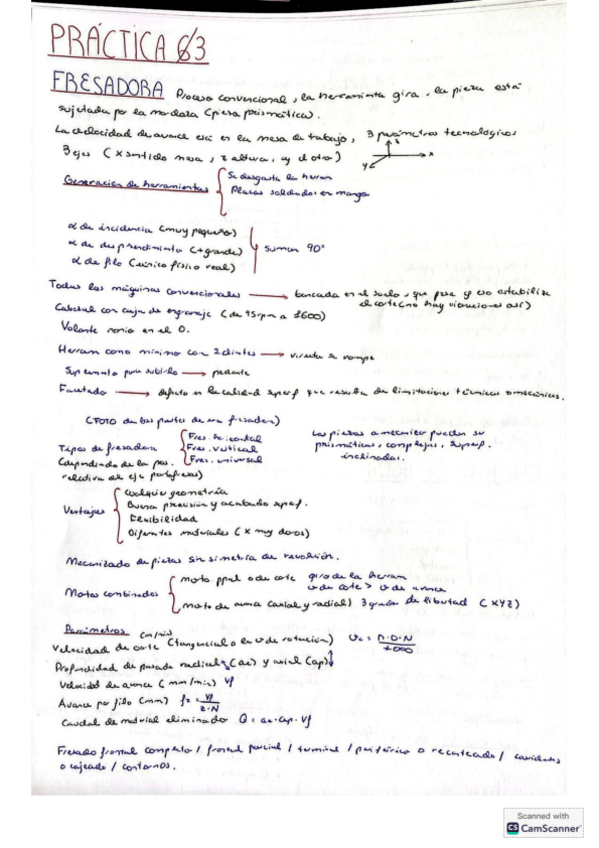 PRÁCTICA 63
FRESADORA Proceso convencional, la herramienta gira, la pieza está
sujetada por la mordaza (pieza prismática).
La velocidad de avance está en la mesa de trabajo, 3 parámetros tecnológicos
3 ejes (x sentido mesa, z altura, y el otro)
x
y
Generación de herramientas
Se desgasta la herram
Placas soldadas en mango
α de incidencia (muy pequeño)
α de desprendimiento (+ grande) suman 90°
α de filo (único físico real)
Todas las máquinas convencionales → bancada en el suelo, que pesa y eso estabiliza
el corte (no hay vibraciones así)
Cabezal con caja de engranaje (de 45rpm a 1600)
Volante nonio en el 0.
Herram como mínimo con 2 dientes → viruta se rompe
Suplemento para subirlo →
Facetado → defecto en la calidad superf que resulta de limitaciones técnicas o mecánicas.
(FOTO de las partes de una fresadora)
Tipos de fresadora
(dependiendo de la pos.
relativa al eje portafresas)
Fres. horizontal
Fres. vertical
Fres. universal
Las piezas a mecanizar pueden ser
prismáticas, complejas, superf.
inclinadas.
Ventajas
Cualquier geometría
Buena precisión y acabado superf.
Flexibilidad
Diferentes materiales (x muy duros)
Mecanizado de piezas sin simetría de revolución.
Motos combinados
moto ppal o de corte giro de la herram
v de corte > v de avance
moto de avance (axial y radial) 3 grados de libertad (XYZ)
Parámetros
(m/min)
Velocidad de corte (tangencial o la v de rotación) Vc = π·D·N / 1000
Profundidad de pasada radical (ae) y axial (ap)
Velocidad de avance (mm/min) Vf
Avance por filo (mm) f = Vf / z·N
Caudal de material eliminado Q = ae·ap·Vf
Fresado frontal completo / frontal parcial / terminal / periférico o recanteado / cavidades
o cajeado / contornos.
Scanned with
CS CamScanner